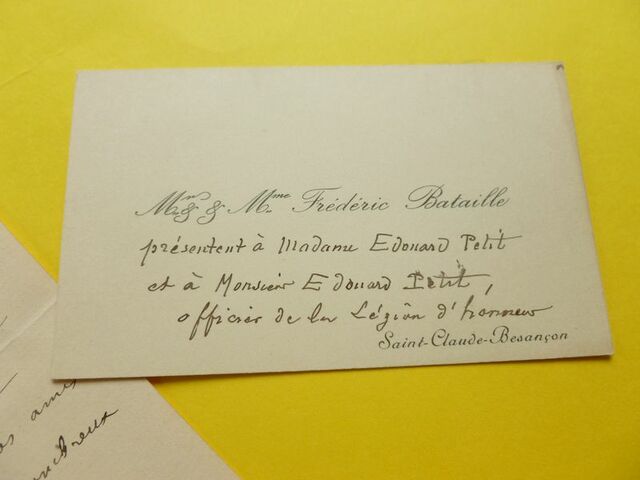 Mr & Mme Frédéric Bataille
présentent à Madame Edouard Petit
et à Monsieur Edouard Petit,
officier de la Légion d'honneur
Saint-Claude-Besançon